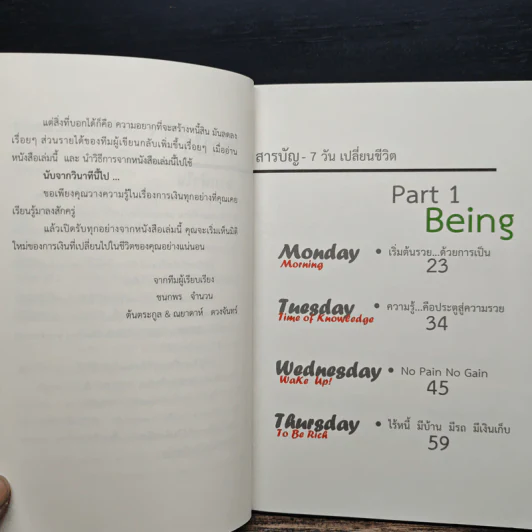 แต่สิ่งที่บอกได้ก็คือ ความอยากที่จะสร้างหนี้สิน มันลดลง
เรื่อยๆ ส่วนรายได้ของทีมผู้เขียนกลับเพิ่มขึ้นเรื่อยๆ เมื่ออ่าน
หนังสือเล่มนี้ และ นำวิธีการจากหนังสือเล่มนี้ไปใช้
นับจากวินาทีนี้ไป ...
ขอเพียงคุณวางความรู้ในเรื่องการเงินทุกอย่างที่คุณเคย
เรียนรู้มาลงสักครู่
แล้วเปิดรับทุกอย่างจากหนังสือเล่มนี้ คุณจะเริ่มเห็นมิติ
ใหม่ของการเงินที่เปลี่ยนไปในชีวิตของคุณอย่างแน่นอน
จากทีมผู้เรียบเรียง
ชนกพร จำนวน
ตันตระกูล & ณยาดาห์ ดวงจันทร์
สารบัญ - 7 วัน เปลี่ยนชีวิต
Part 1
Being
Monday • เริ่มต้นรวย...ด้วยการเป็น
Morning 23
Tuesday • ความรู้...คือประตูสู่ความรวย
Time of Knowledge 34
Wednesday • No Pain No Gain
Wake Up! 45
Thursday • ไร้หนี้ มีบ้าน มีรถ มีเงินเก็บ
To Be Rich 59